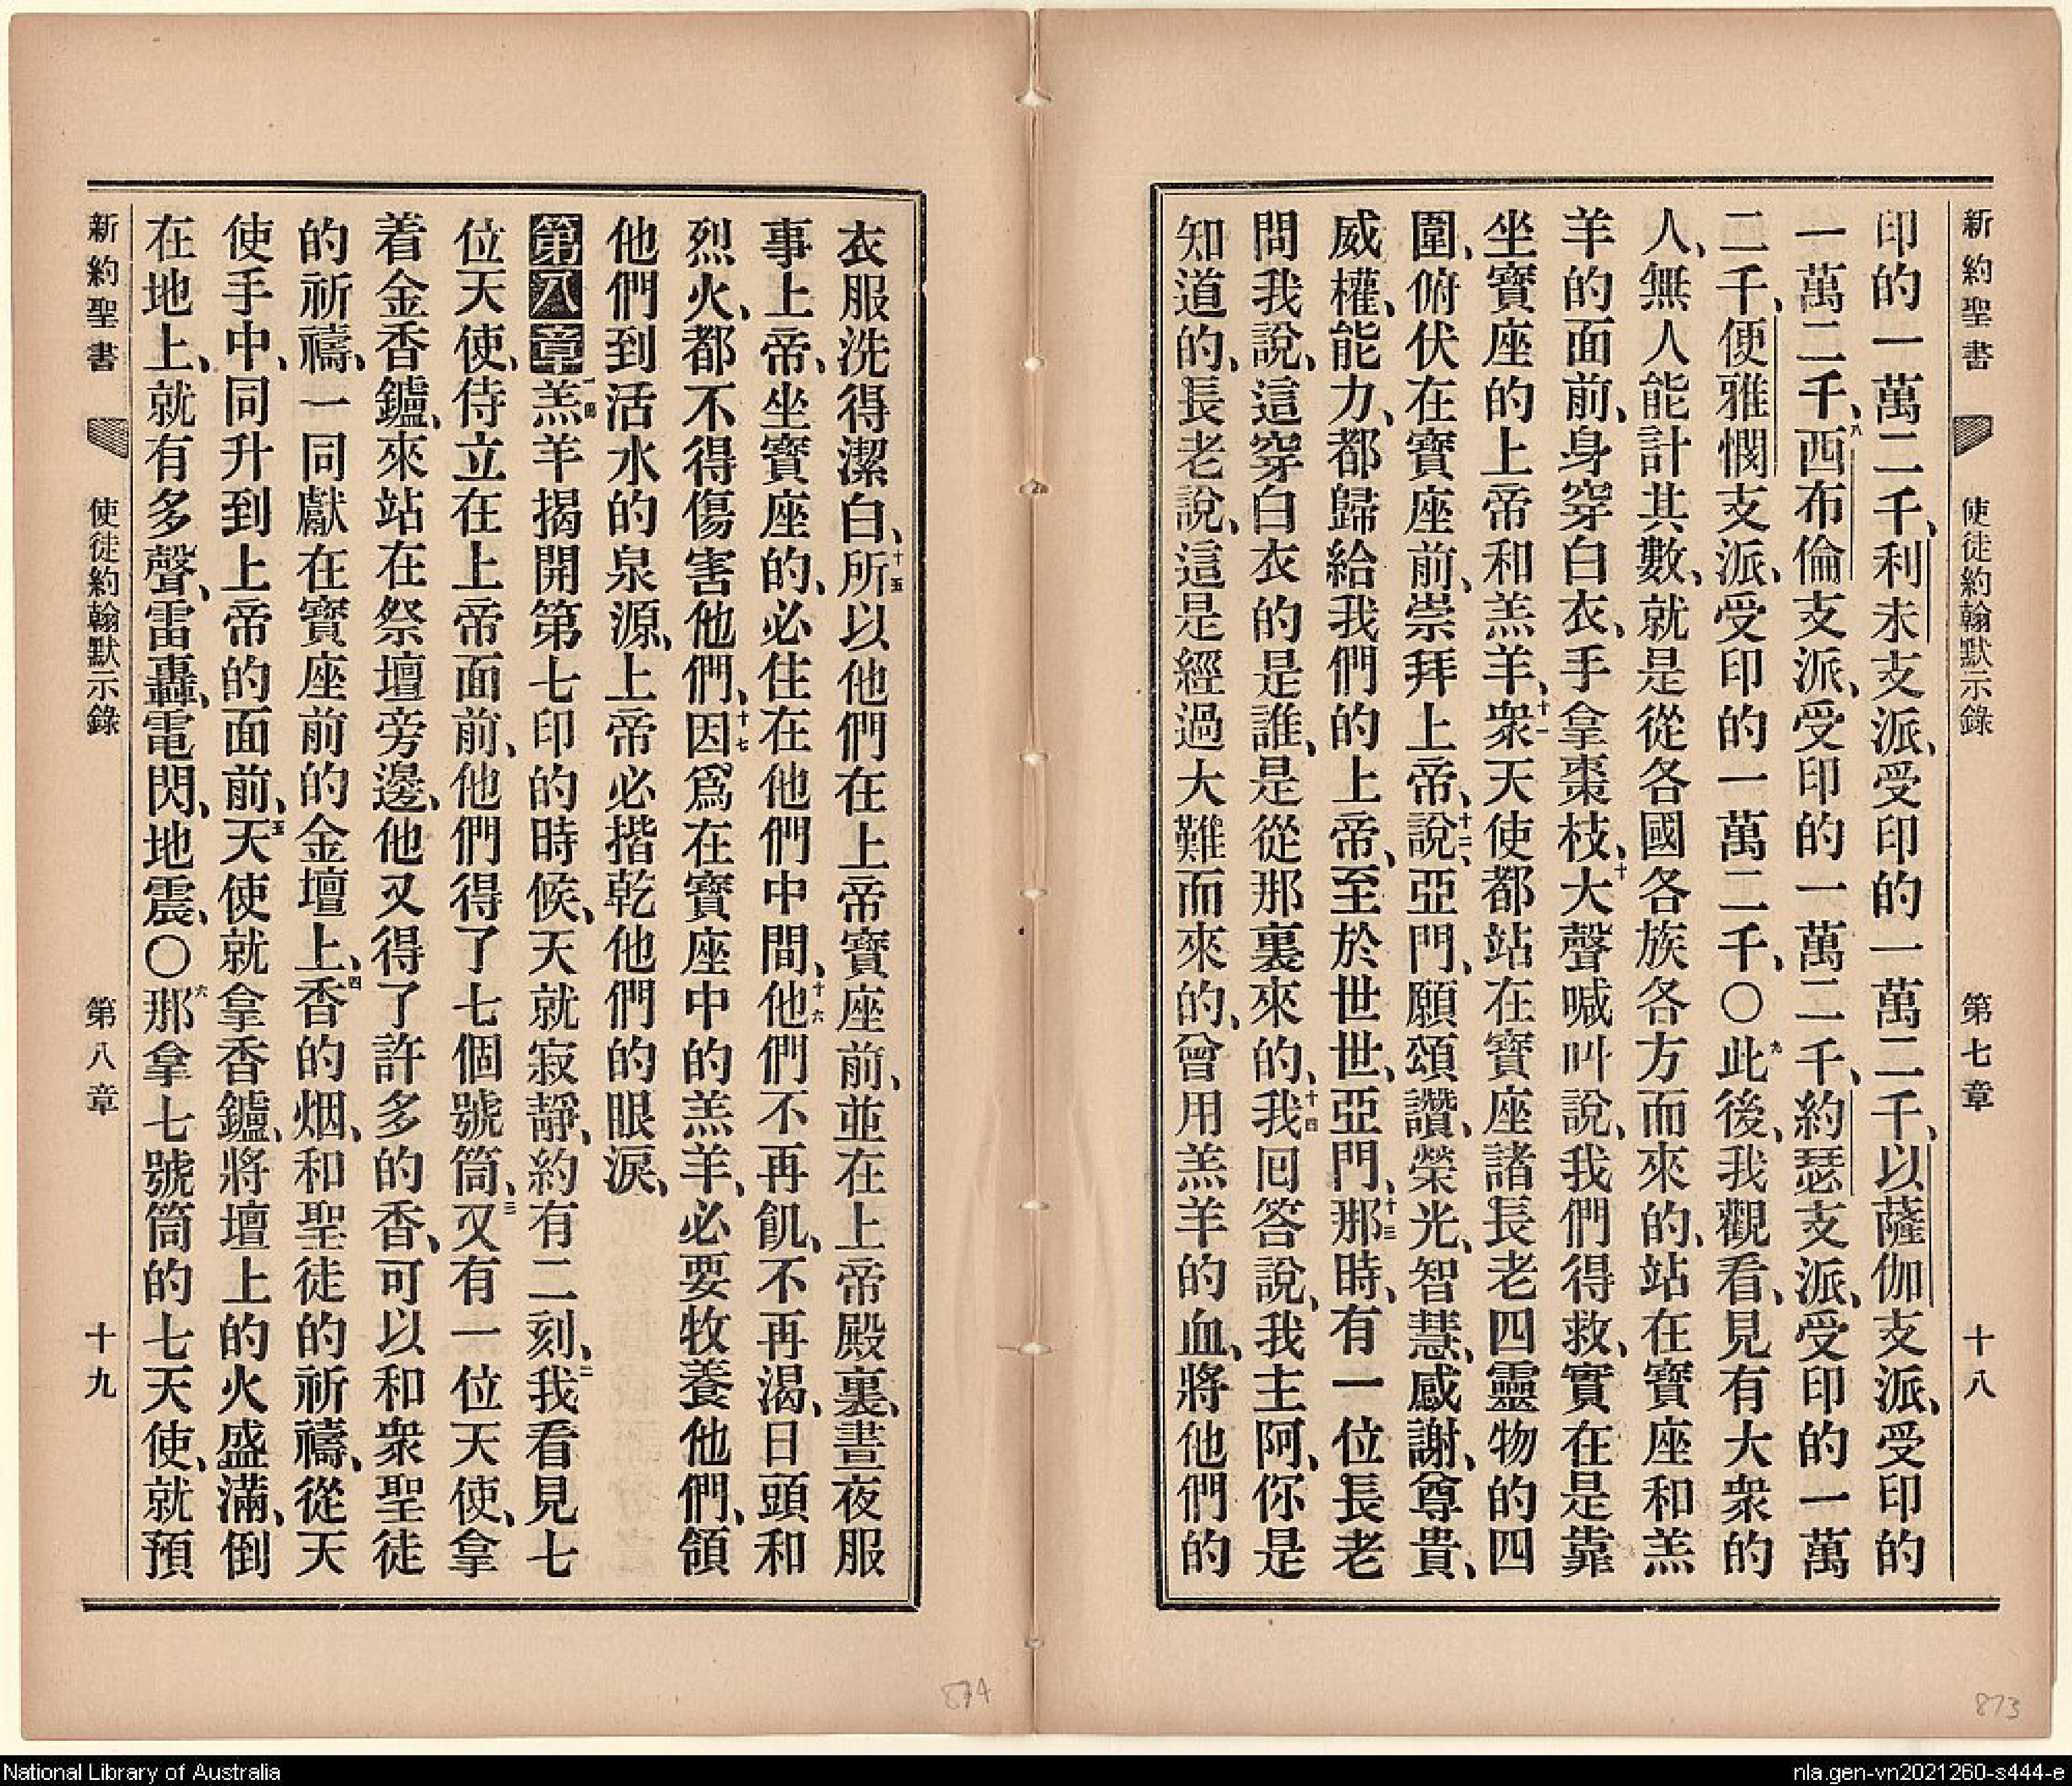 新約聖書 使徒約翰默示錄 第七章 十八
印的一萬二千、利未支派、受印的一萬二千、以薩伽支派、受印的
一萬二千、八西布倫支派、受印的一萬二千、約瑟支派、受印的一萬
二千、便雅憫支派、受印的一萬二千、〇九此後、我觀看、見有大衆的
人、無人能計其數、就是從各國各族各方而來的、站在寶座和羔
羊的面前、身穿白衣、手拿棗枝、十大聲喊叫說、我們得救、實在是靠
坐寶座的上帝和羔羊、十一衆天使都站在寶座諸長老四靈物的四
圍、俯伏在寶座前、崇拜上帝、十二說、亞門、願頌讚、榮光、智慧、感謝、尊貴、
威權、能力、都歸給我們的上帝、至於世世、亞門、十三那時、有一位長老
問我說、這穿白衣的是誰、是從那裏來的、十四我回答說、我主阿、你是
知道的、長老說、這是經過大難而來的、曾用羔羊的血、將他們的
衣服洗得潔白、十五所以他們在上帝寶座前、並在上帝殿裏、晝夜服
事上帝、坐寶座的、必住在他們中間、十六他們不再飢、不再渴、日頭和
烈火、都不得傷害他們、十七因爲在寶座中的羔羊、必要牧養他們、領
他們到活水的泉源、上帝必揩乾他們的眼淚、
第八章一羔羊揭開第七印的時候、天就寂靜、約有二刻、二我看見七
位天使、侍立在上帝面前、他們得了七個號筒、三又有一位天使、拿
着金香鑪、來站在祭壇旁邊、他又得了許多的香、可以和衆聖徒
的祈禱、一同獻在寶座前的金壇上、四香的烟、和聖徒的祈禱、從天
使手中、同升到上帝的面前、五天使就拿香鑪、將壇上的火盛滿、倒
在地上、就有多聲、雷轟、電閃、地震、〇六那拿七號筒的七天使、就預
新約聖書 使徒約翰默示錄 第八章 十九
874
873
National Library of Australia
nla.gen-vn2021260-s444-e